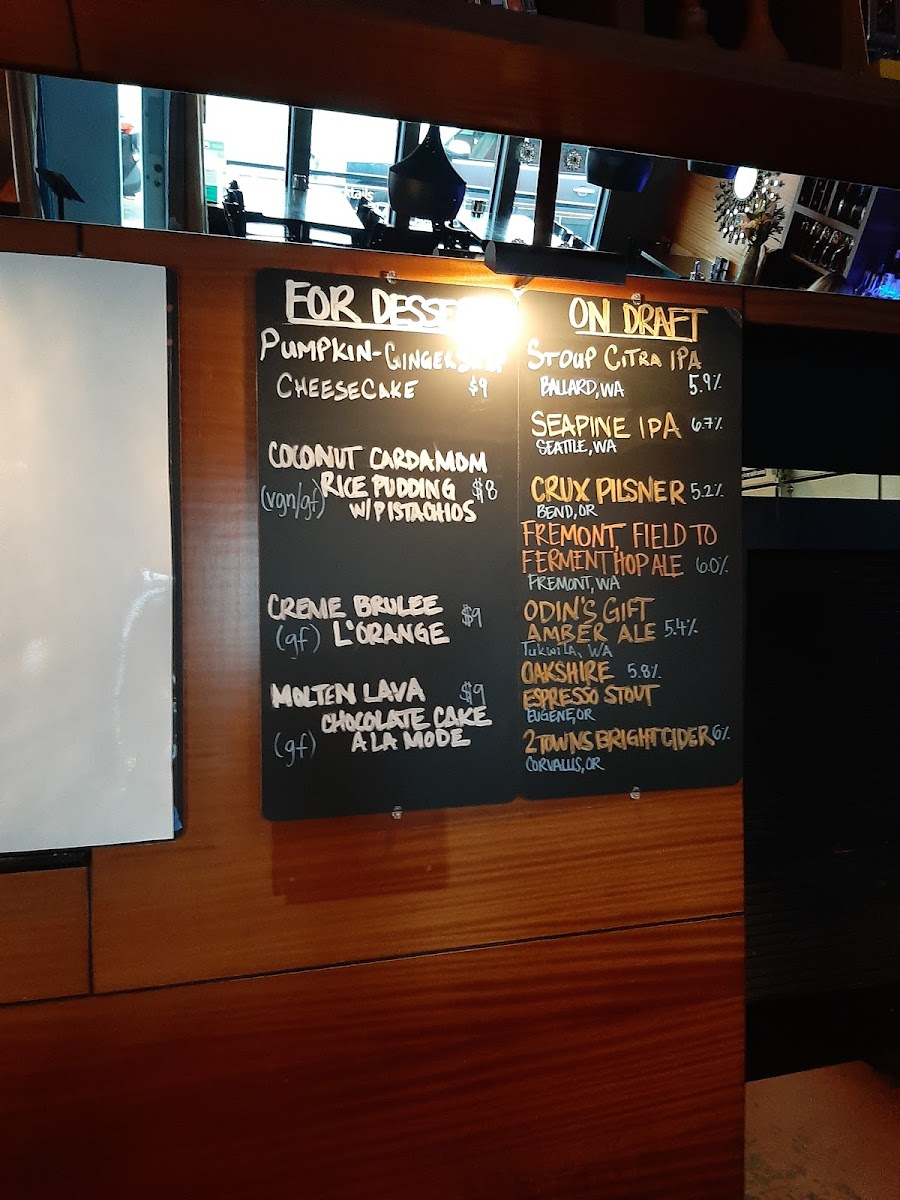 FOR DESSE
PUMPKIN-GINGERSNAP
CHEESECAKE $9
COCONUT CARDAMOM
(vgn/gf) RICE PUDDING $8
W/PISTACHIOS
CREME BRULEE $9
(gf) L'ORANGE
MOLTEN LAVA $9
CHOCOLATE CAKE
(gf) A LA MODE
ON DRAFT
STOUP CITRA IPA
BALLARD, WA 5.9%
SEAPINE IPA 6.7%
SEATTLE, WA
CRUX PILSNER 5.2%
BEND, OR
FREMONT, FIELD TO
FERMENT HOP ALE 6.0%
FREMONT, WA
ODIN'S GIFT
AMBER ALE 5.4%
TUKWILA, WA
OAKSHIRE 5.8%
ESPRESSO STOUT
EUGENE, OR
2TOWNS BRIGHTCIDER 6%
CORVALLIS, OR